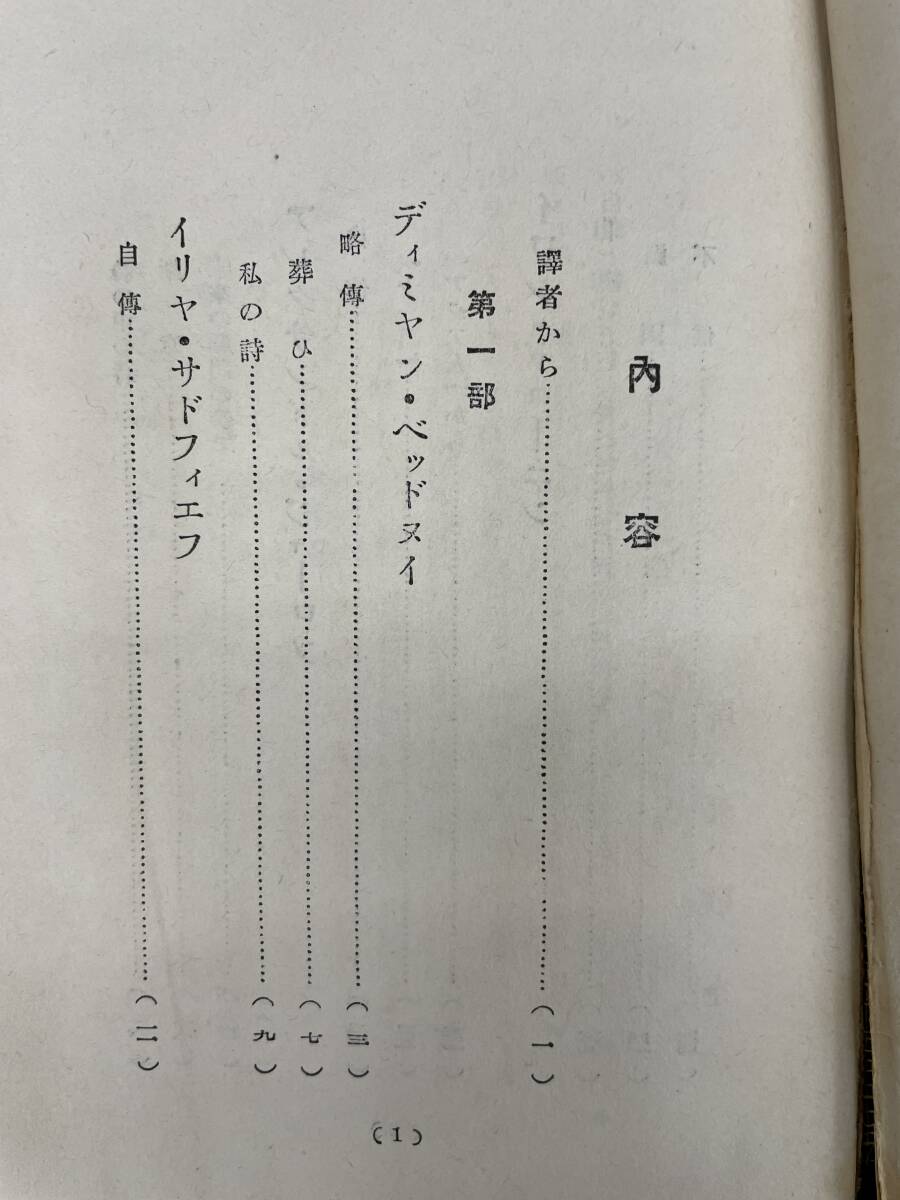 內容
譯者から……………(一)
第一部
ディミヤン・ベッドヌイ
略傳……………(三)
葬ひ……………(七)
私の詩……………(九)
イリヤ・サドフィエフ
自傳……………(一一)
(1)